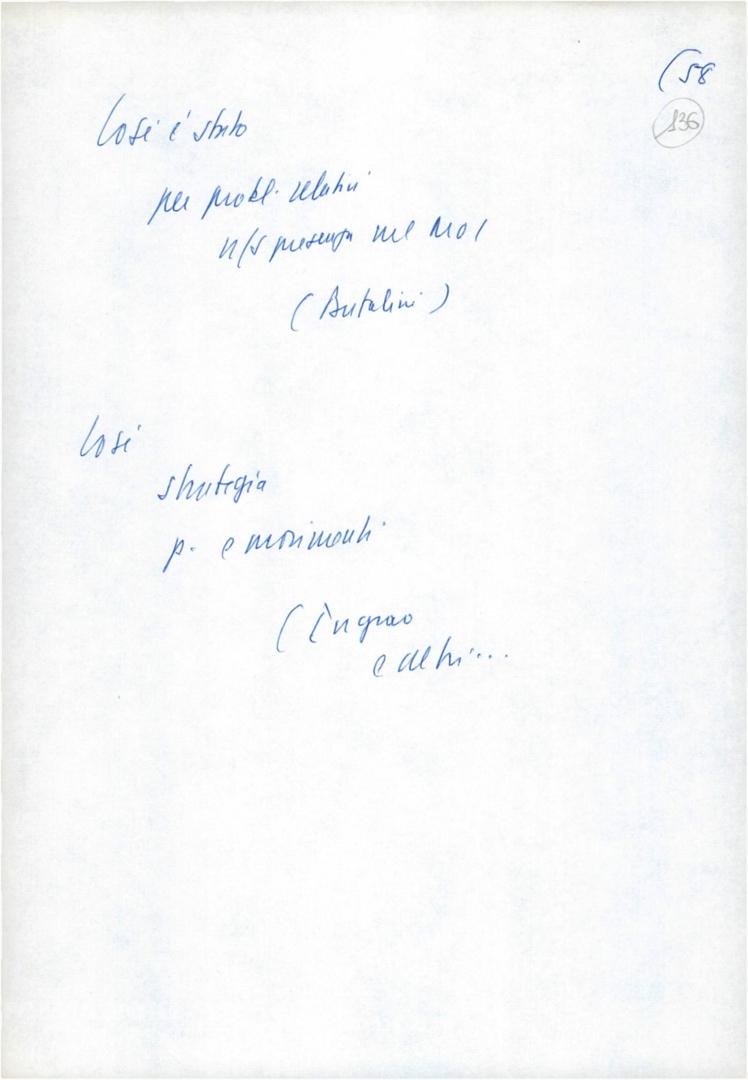 (58
136
Così è stato
per probl. relativi
n/s presenza nel MOI
(Bufalini)
Così
strategia
p. e movimenti
(Ingrao
e altri...